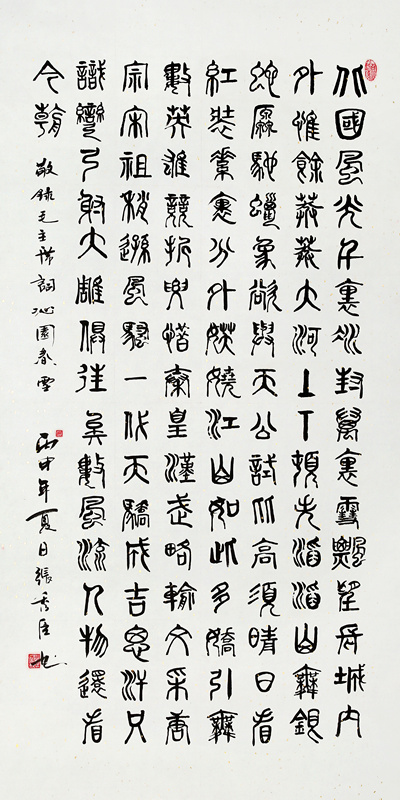 北國風光千裏冰封萬裏雪飄望長城內
外惟餘莽莽大河上下頓失滔滔山舞銀
蛇原馳蠟象欲與天公試比高須晴日看
紅裝素裹分外妖嬈江山如此多嬌引無
數英雄競折腰惜秦皇漢武略輸文采唐
宗宋祖稍遜風騷一代天驕成吉思汗只
識彎弓射大雕俱往矣數風流人物還看
今朝 敬錄毛主席詞沁園春雪 丙申年夏日張秀臣书